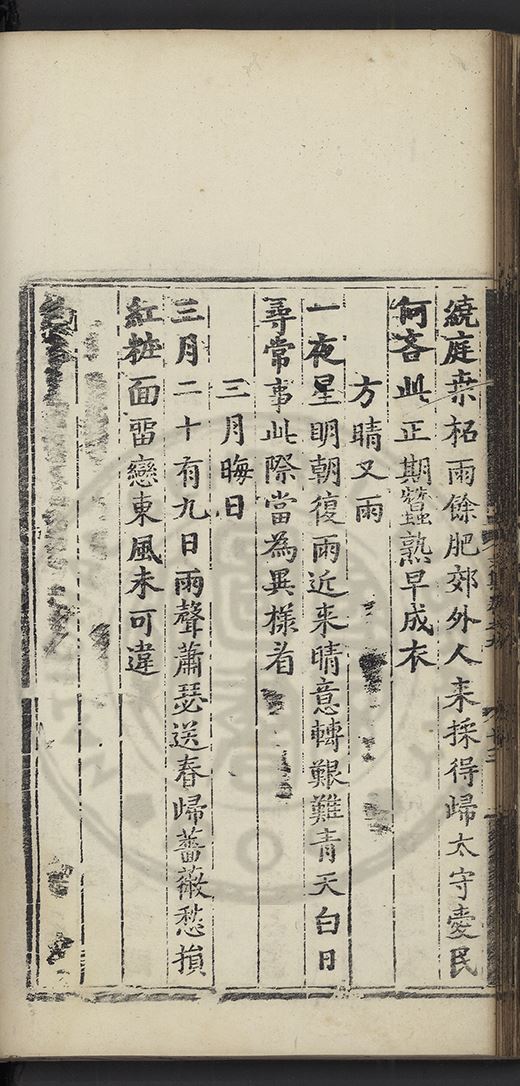 繞庭桒柘雨餘肥郊外人来採得歸太守憂民
何吝此正期蠶熟早成衣
方晴又雨
一夜星眀朝復雨近来晴意轉艱難青天白日
尋常事此際當為異様看
三月晦日
三月二十有九日雨聲蕭瑟送春歸薔薇愁損
紅粧面畱戀東風未可違